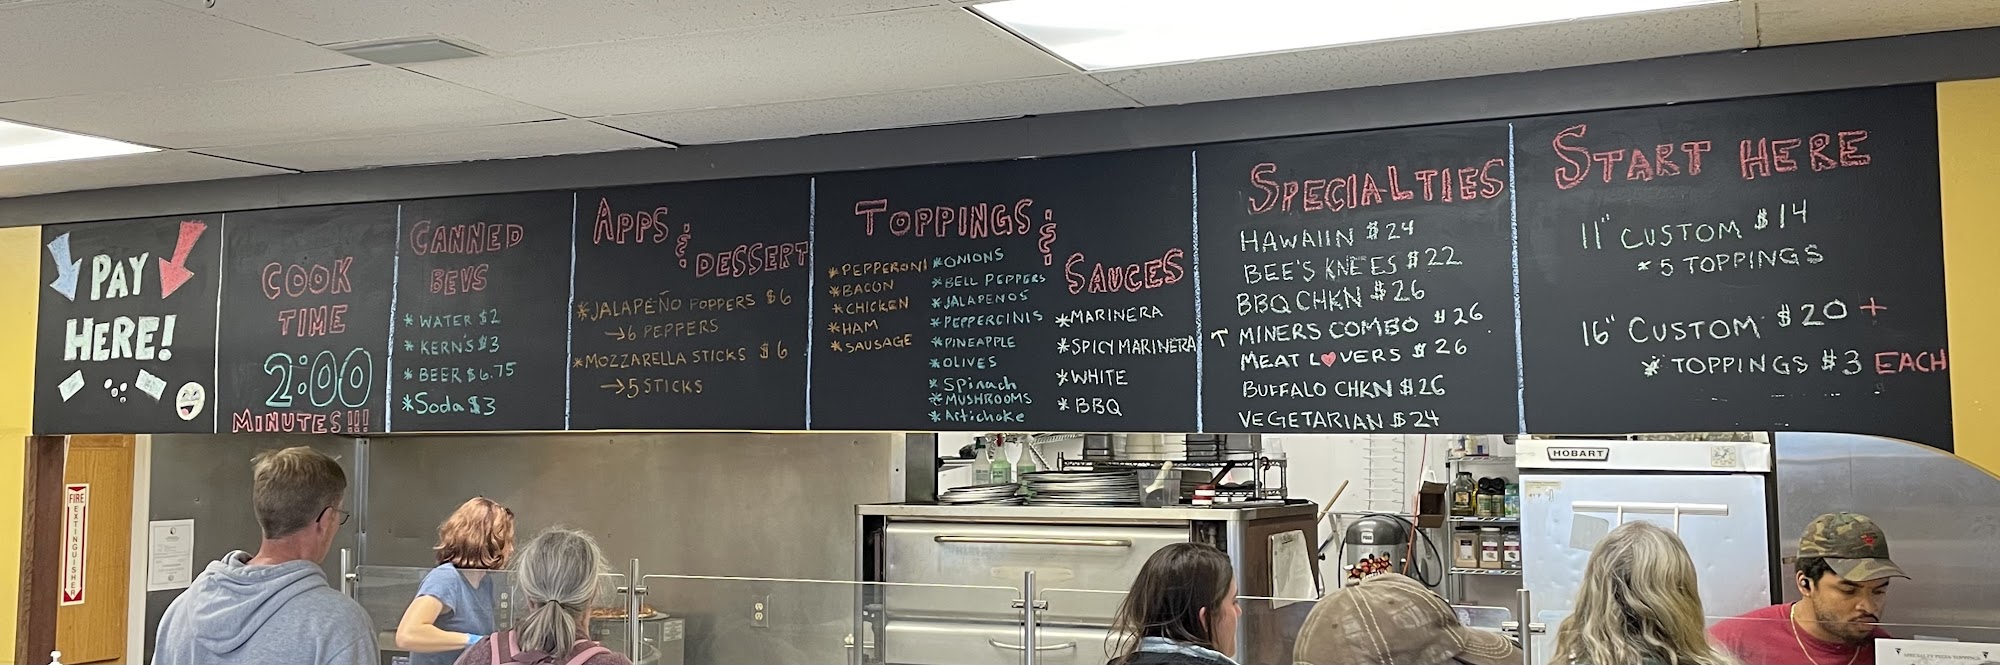 PAY
HERE!
COOK
TIME
2:00
MINUTES!!!
CANNED
BEVS
*WATER $2
*KERN'S $3
*BEER $6.75
*Soda $3
APPS
&
DESSERT
*JALAPEÑO POPPERS $6
→6 PEPPERS
*MOZZARELLA STICKS $6
→5 STICKS
TOPPINGS
&
SAUCES
*PEPPERONI
*BACON
*CHICKEN
*HAM
*SAUSAGE
*ONIONS
*BELL PEPPERS
*JALAPENOS
*PEPPERCINIS
*PINEAPPLE
*OLIVES
*Spinach
*MUSHROOMS
*Artichoke
*MARINERA
*SPICY MARINERA
*WHITE
*BBQ
SPECIALTIES
HAWAIIN $24
BEE'S KNEES $22
BBQ CHKN $26
MINERS COMBO $26
MEAT L♥VERS $26
BUFFALO CHKN $26
VEGETARIAN $24
START HERE
11" CUSTOM $14
*5 TOPPINGS
16" CUSTOM $20 +
*TOPPINGS $3 EACH
FIRE
EXTINGUISHER
HOBART